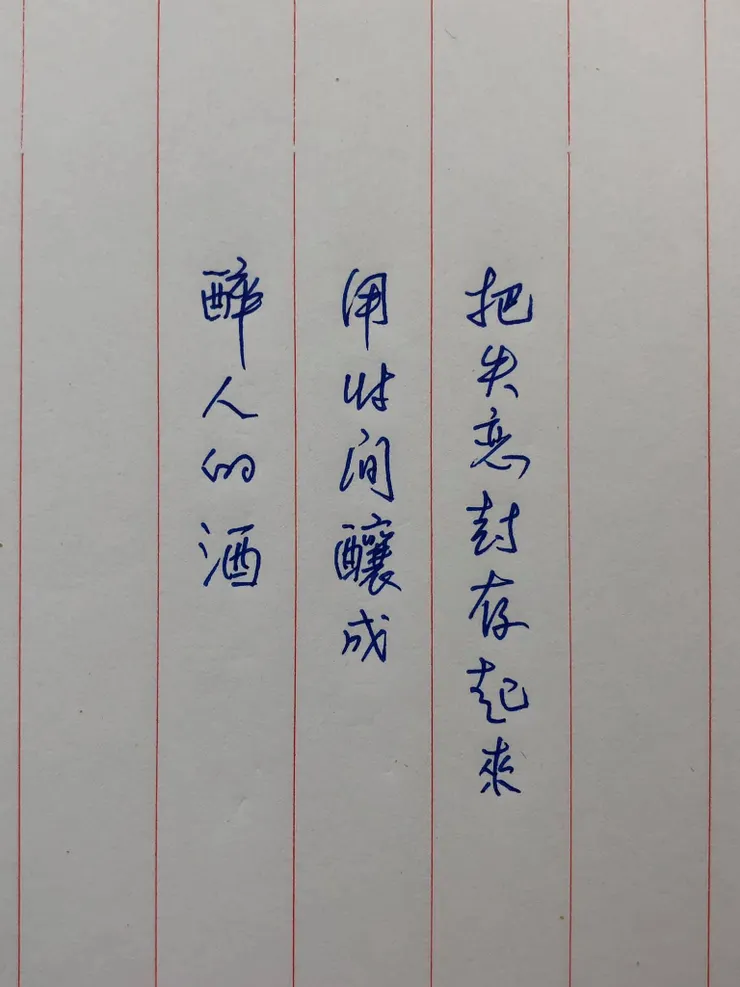 把失恋封存起来
用时间釀成
醉人的酒